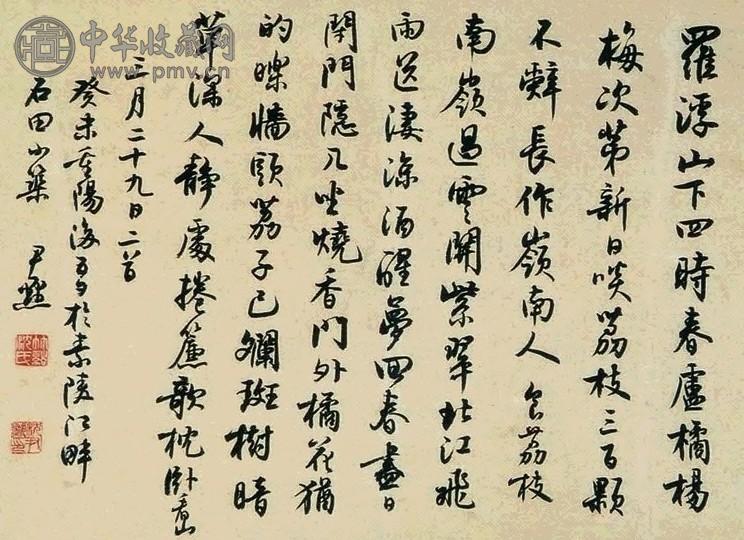 中华收藏网
www.pmv.cn
羅浮山下四時春盧橘楊
梅次第新日啖荔枝三百顆
不辭長作嶺南人 食荔枝
南嶺過雲開紫翠北江飛
雨送淒涼酒醒夢回春盡日
閉門隱几坐燒香門外橘花猶
的皪牆頭荔子已斕斑樹暗
草深人靜處捲簾欹枕臥看山
三月二十九日二首
癸未重陽後於嘉陵江畔
石田小築 尹默